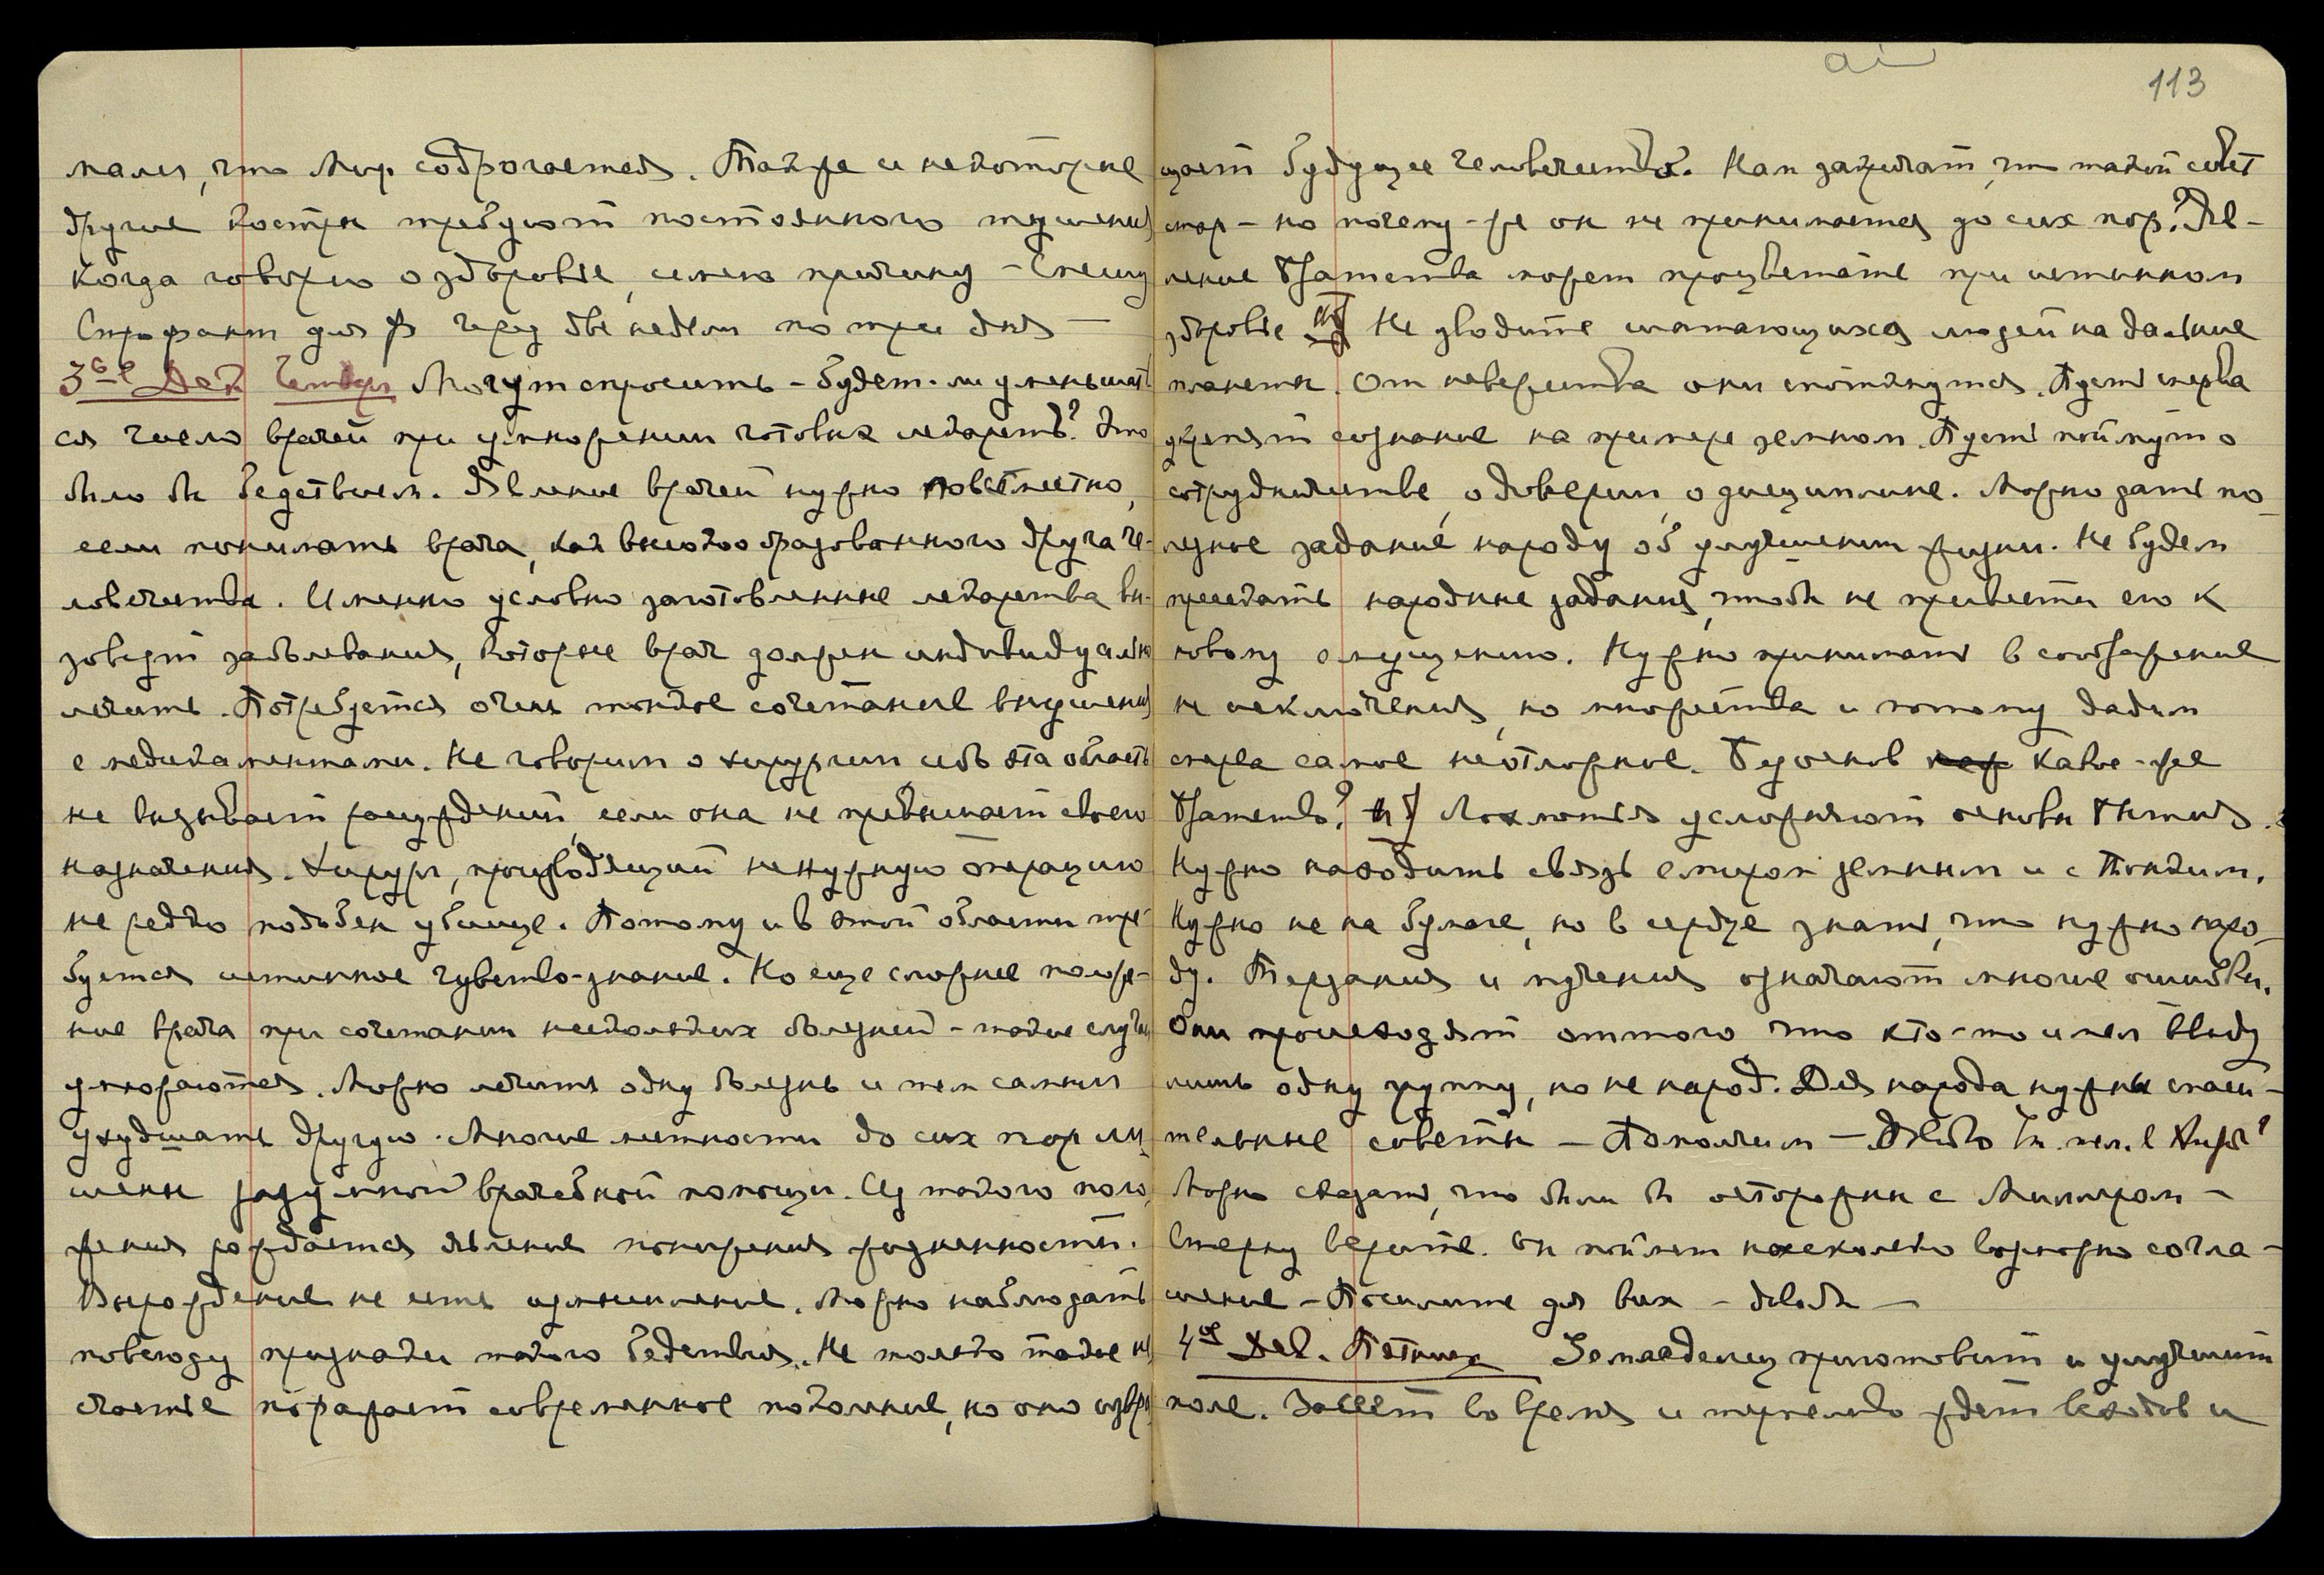 113
мали, что Мир содрогается. Также и некоторые
другие костры требуют постоянного тушения
когда говорю о здоровье, имею причину – Спешу
Строфант для через две недели по три дня –
3ье Дек Четверг Могут спросить – будет-ли уменьшать
ся число врачей при умножении готовых лекарств? Это
было бы бедствием. Явление врачей нужно повсеместно,
если понимать врача, как высокообразованного друга че-
ловечества. Именно условно заготовленные лекарства вы-
зовут заболевания, которые врач должен индивидуально
лечить. Потребуется очень тонкое сочетание внушения
с медикаментами. Не говорим о хирургии ибо эта область
не вызывает рассуждений, если она не превышает своего
назначения. Хирург, производящий ненужную операцию
не редко подобен убийце. Потому и в этой области тре-
буется истинное чувство-знание. Но еще сложнее положе-
ние врача при сочетании нескольких болезней – такие случаи
умножаются. Можно лечить одну болезнь и тем самым
ухудшать другую. Многие местности до сих пор ли-
шены разумной врачебной помощи. Из такого поло-
жения рождается явление понижения жизненности.
Вырождение не есть измышление. Можно наблюдать
повсюду признаки такого бедствия. Не только такое не
счастье поражает современное поколение, но оно извра
щает будущее человечества. Нам заметят, что такой совет
стар – но почему-же он не принимается до сих пор? Яв-
ление Братства может процветать при истинном
здоровье Не уводите шатающихся людей на дальние
планеты. От неверства они споткнутся. Пусть сперва
укрепят сознание на примере земном. Пусть поймут о
сотрудничестве, о доверии, о дисциплине. Можно дать по-
лезное задание народу об улучшении жизни. Не будем
пресекать народные задания, чтобы не привести его к
новому смущению. Нужно принимать в соображение
не исключения, но множества и потому дадим
сперва самое неотложное. Безоснов какое-же
Братство? Лохмотья усложняют основы Бытия.
Нужно находить связь с миром земным и с Тонким.
Нужно не на бумаге, но в сердце знать, что нужно наро-
ду. Терзания и мучения означают многие ошибки.
Они происходят оттого что кто-то имел ввиду
лишь одну группу, но не народ. Для народа нужны спаси-
тельные советы – Помолчим –
Можно сказать, что были бы осторожны с
верите. Он поймет насколько возможно согла-
шение – Посылайте для вих –
4ое Дек. Пятница Земледелец приготовит и улучшит
поле. Засеет во время и терпеливо ждет всходов и